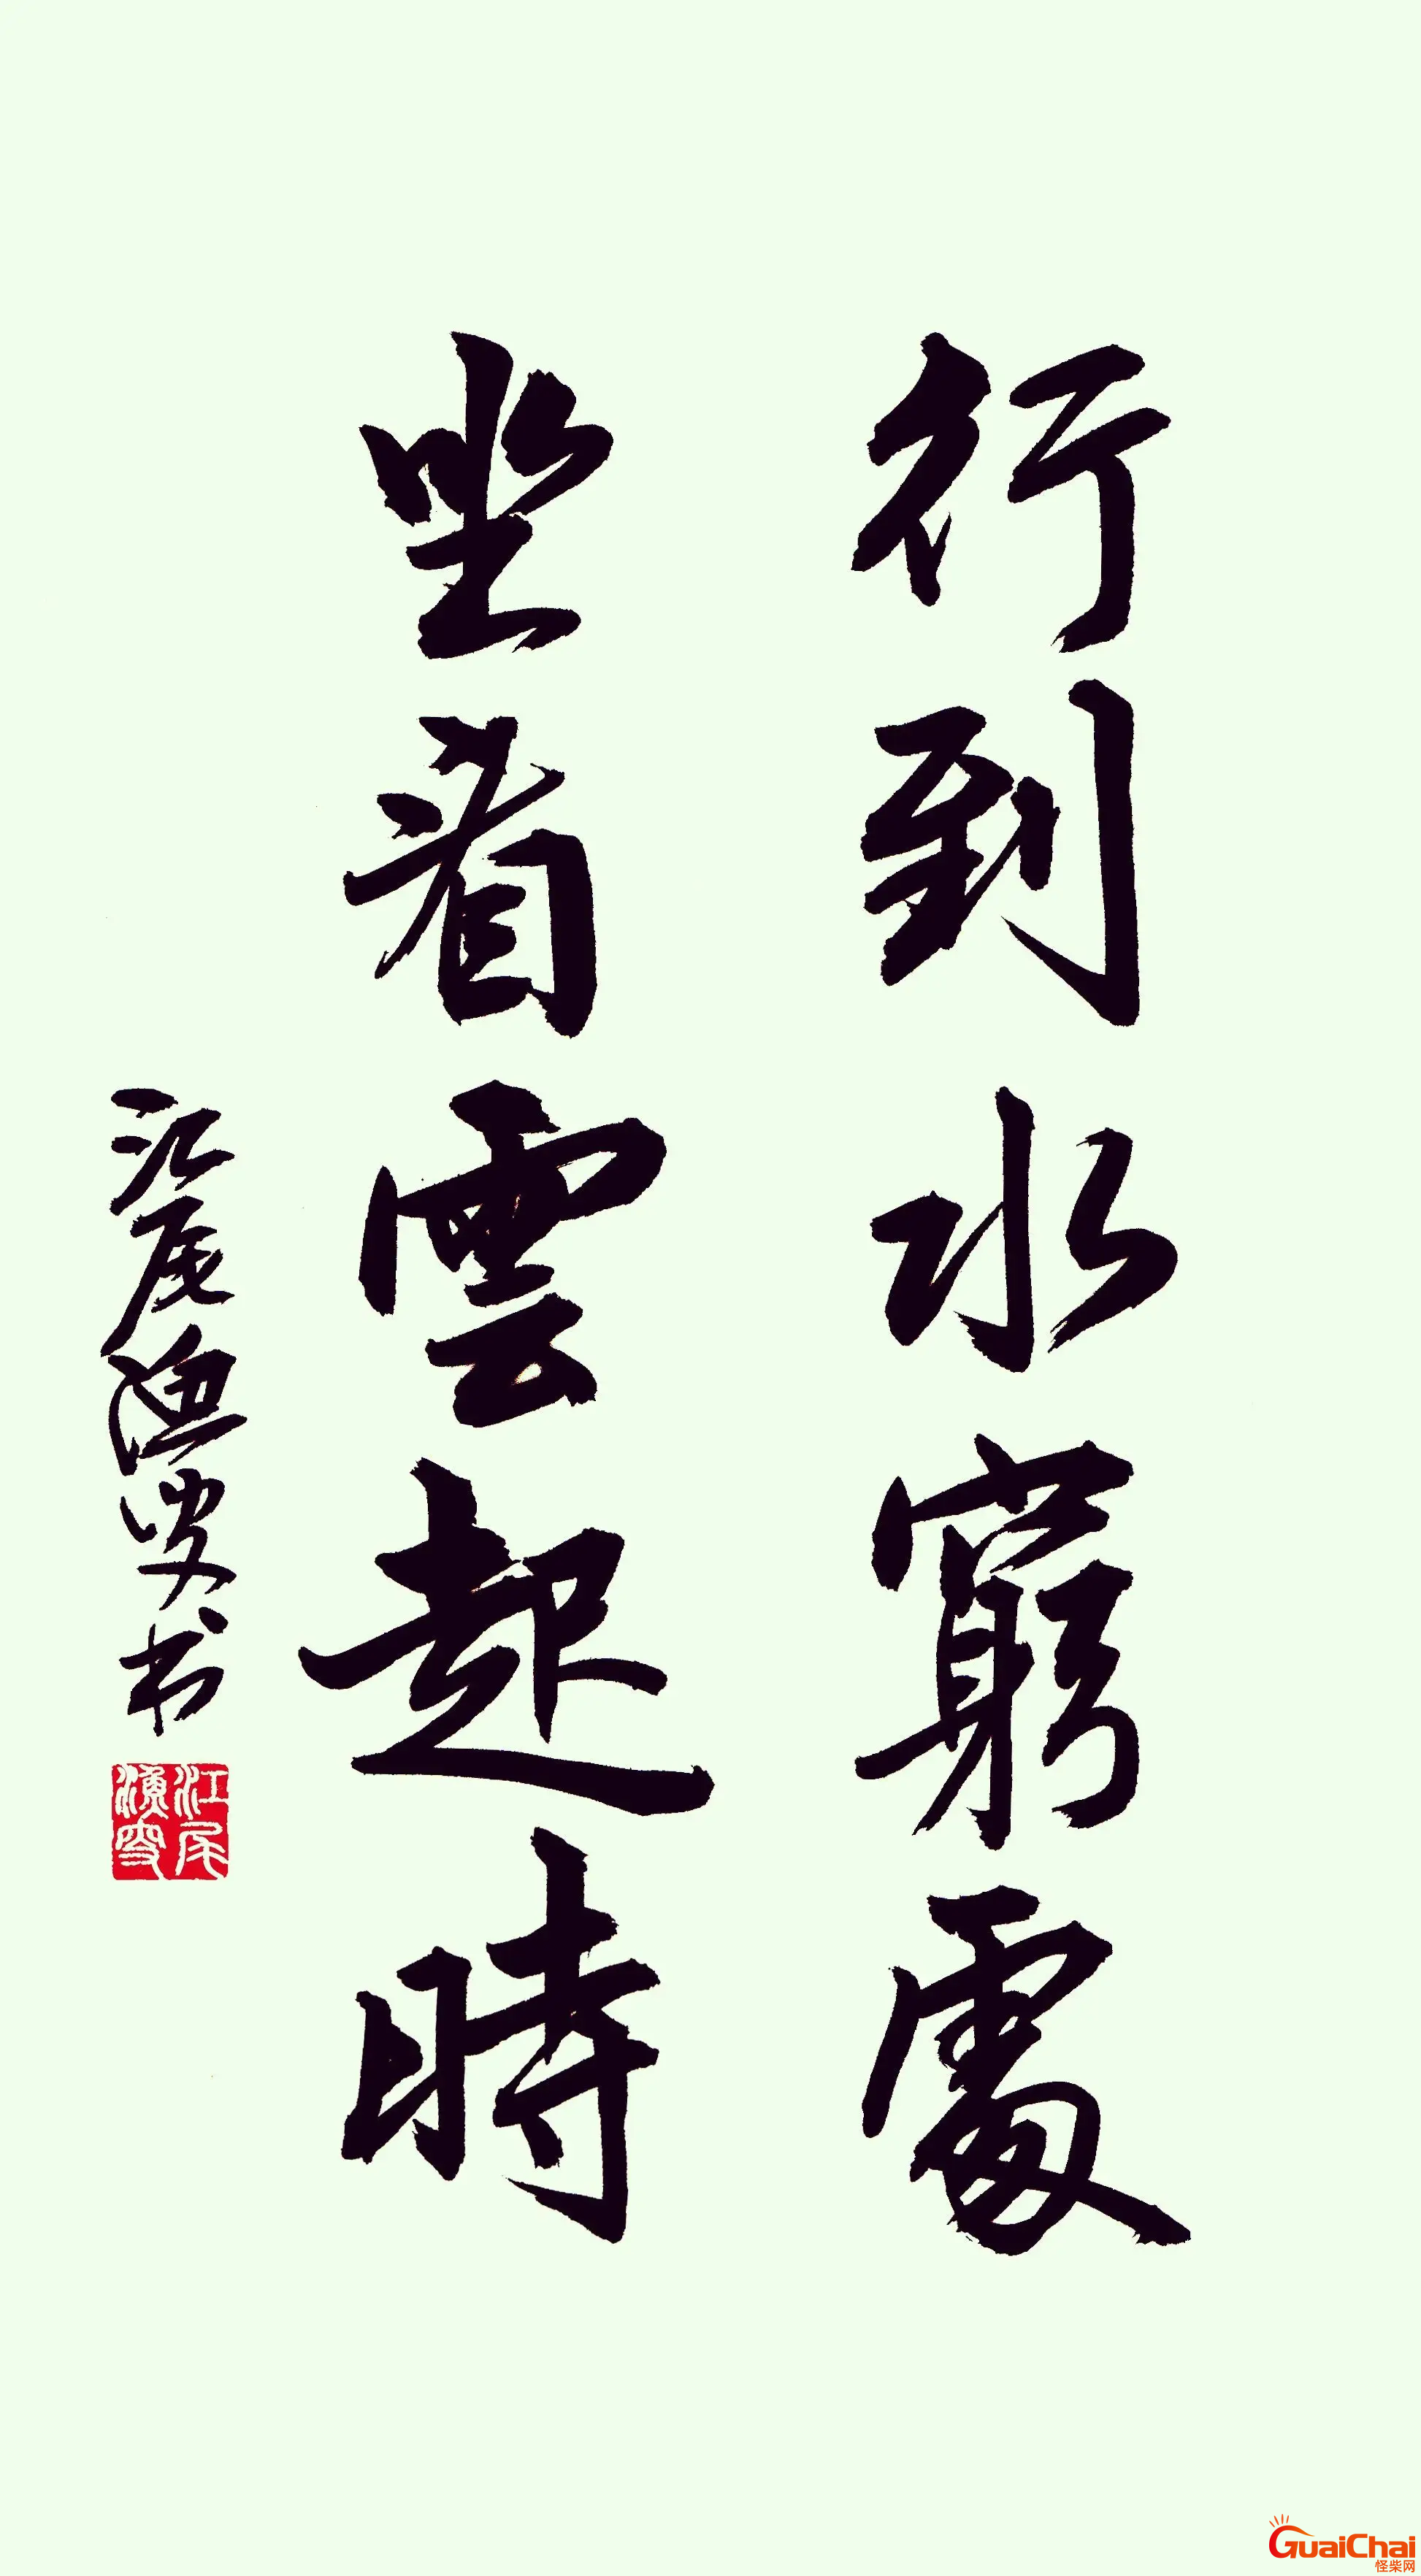 行到水窮處
坐看雲起時
江尾渔叟书
江尾
漁叟
GuaiChai
怪柴网